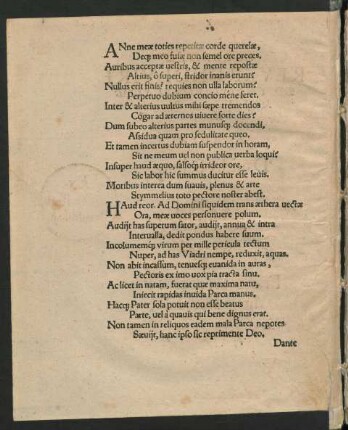 ANne meæ toties repetitæ corde querelæ,
Deq; meo fusæ non semel ore preces,
Auribus acceptæ uestris, & mente repostæ
Altius, ô superi, stridor inanis erunt?
Nullus erit finis? requies non ulla laborum?
Perpetuo dubium concio mêne feret.
Inter & alterius uultus mihi sæpe tremendos
Cogar ad æternos uiuere sorte dies?
Dum subeo alterius partes munusq; docendi,
Assiduus quam pro sedulitate queo,
Et tamen incertus dubiam suspendor in horam,
Sit ne meum uel non publica uerba loqui?
Insuper haud æquo, falsoq; irridear ore,
Sic labor hic summus ducitur esse leuis.
Motibus interea dum suauis, plenus & arte
Stymmelius toto pectore noster abest.
HAud reor. Ad Domini siquidem trans æthera uectæ
Ora, meæ uoces personuere polum.
Audijt has superum sator, audijt, annuit & intra
Interualla, dedit pondus habere suum.
Incolumemq; virum per mille pericula tectum
Nuper, ad has Viadri nempe, reduxit, aquas.
Non abit incassum, tenuesq; euanida in auras,
Pectoris ex imo uox pia tracta sinu.
Ac licet in natam, fuerat quæ maxima natu,
Iniecit rapidas inuida Parca manus.
Hacq; Pater sola potuit non esse beatus
Parte, uel à quauis qui bene dignus erat.
Non tamen in reliquos eadem mala Parca nepotes
Sæuijt, hanc ipso sic reprimente Deo.
Dante